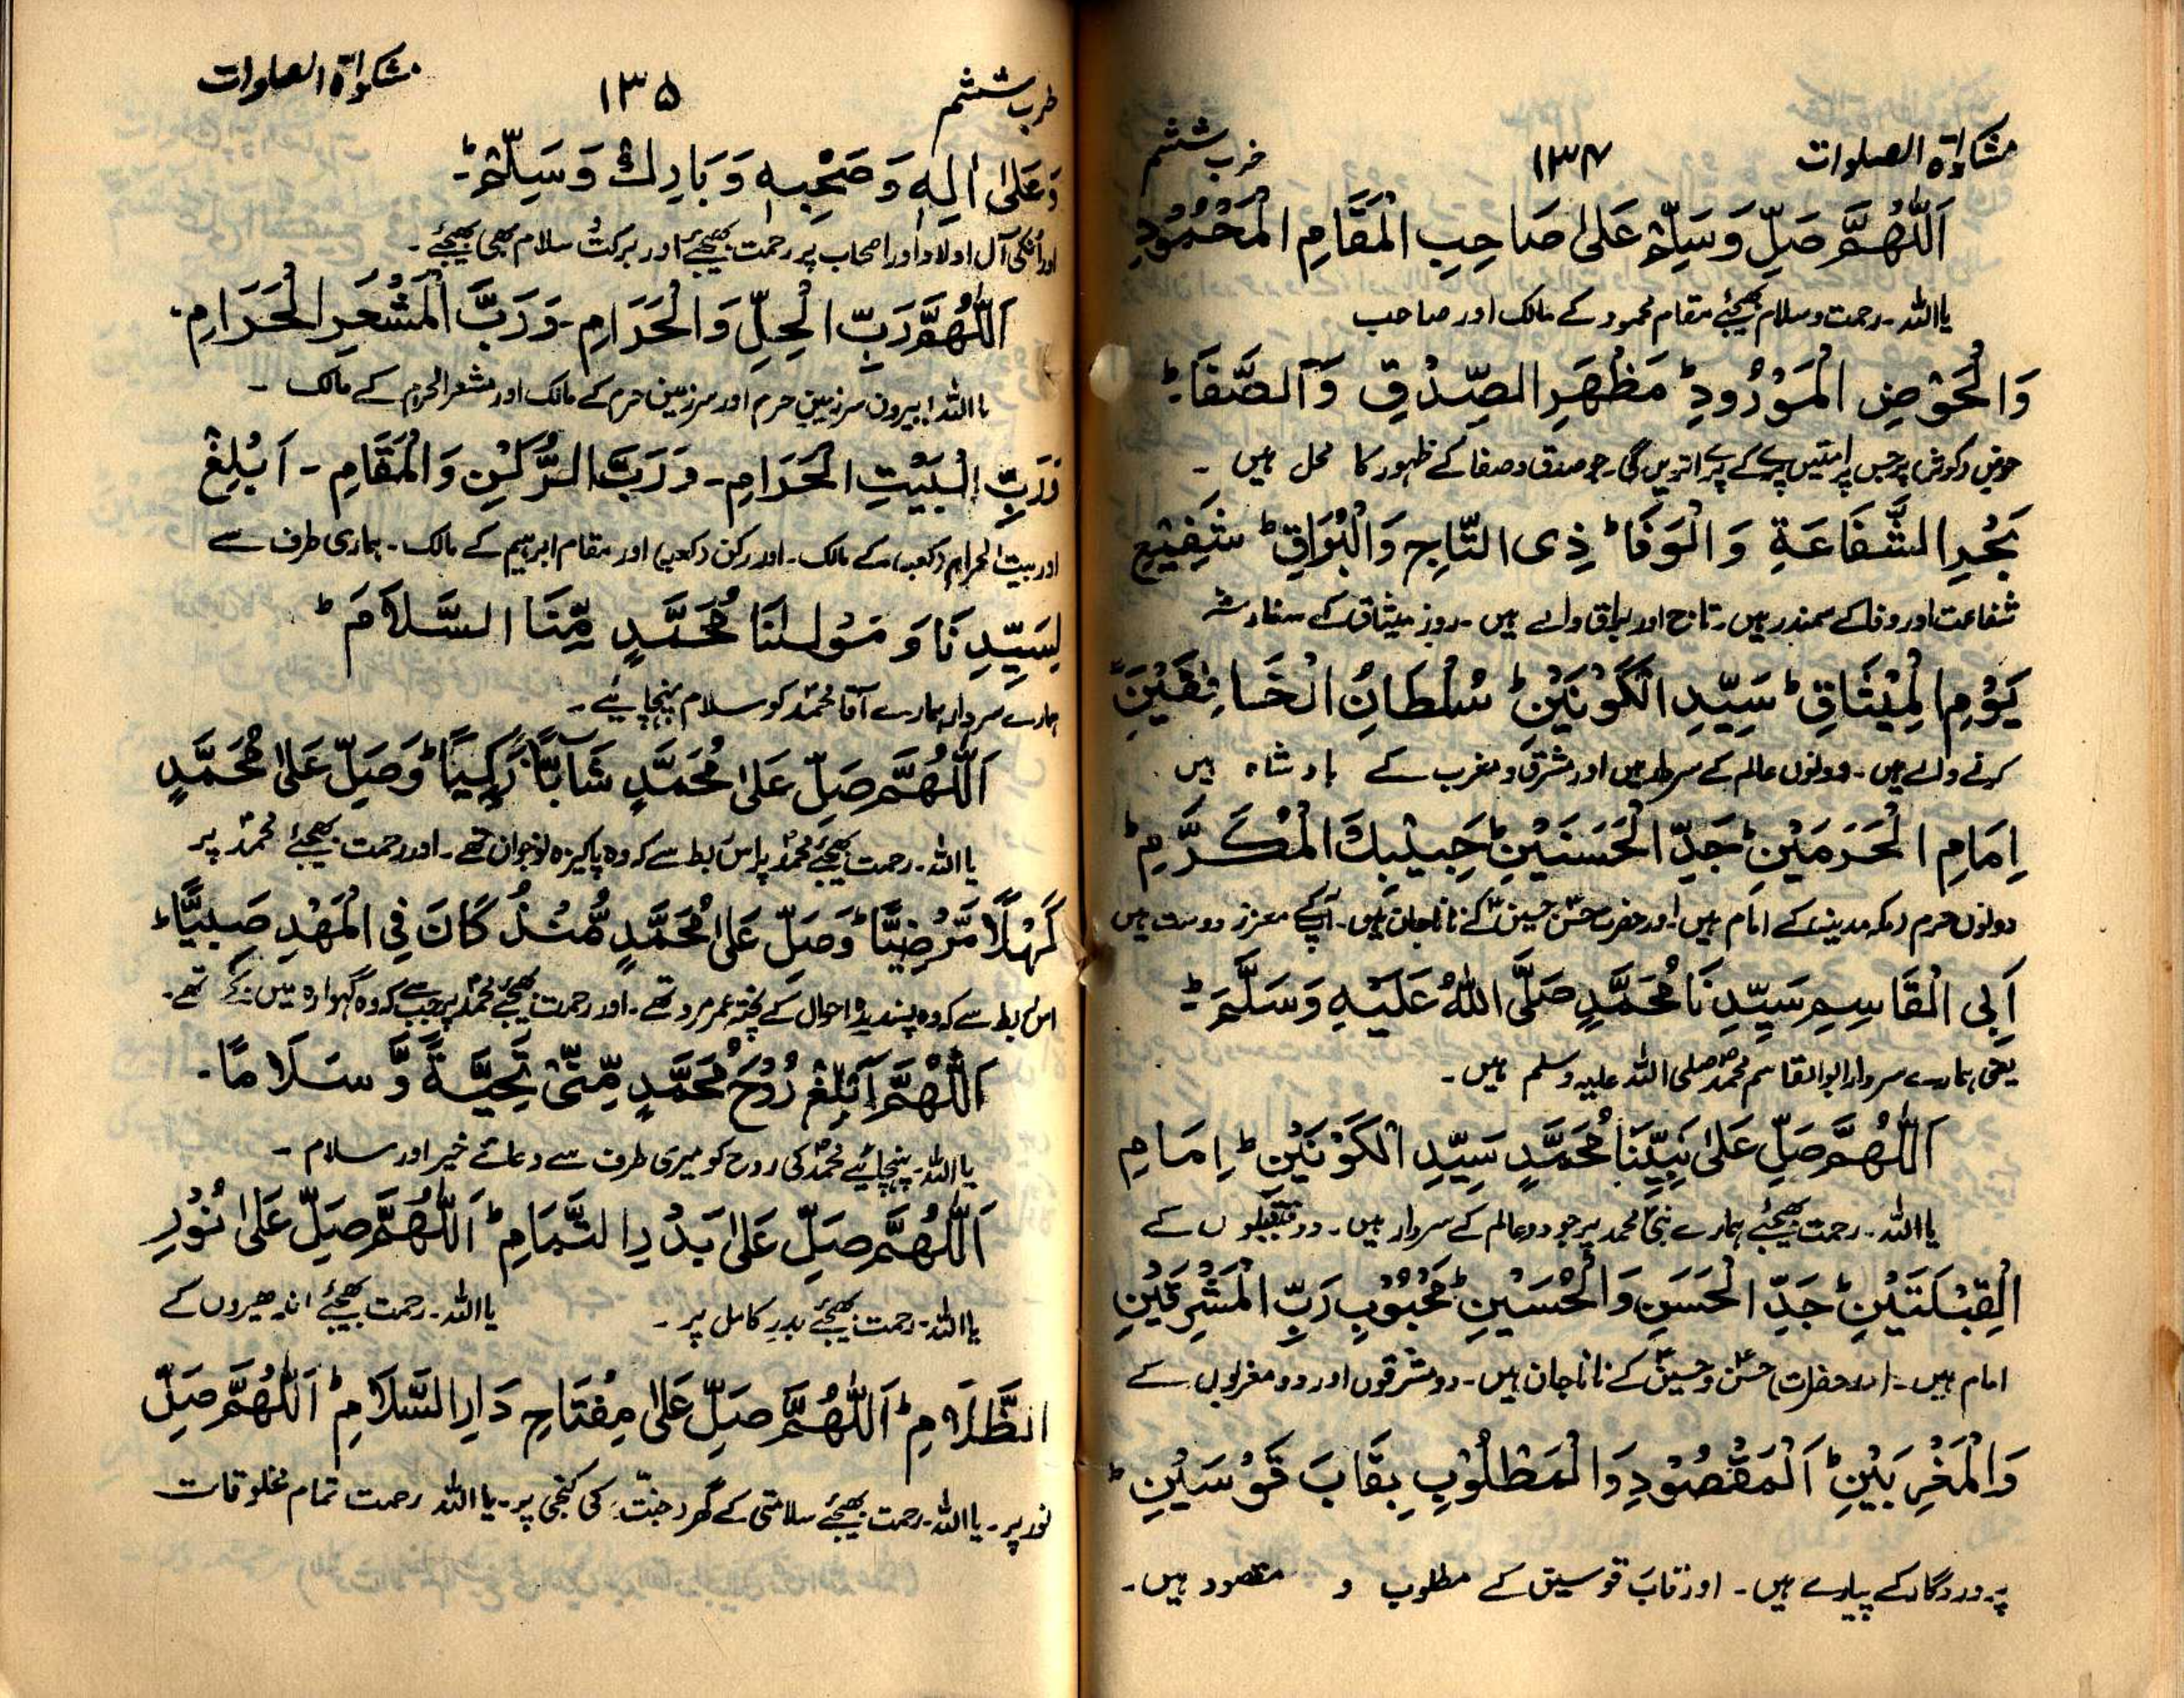 مشکوٰۃ الصلوات ۱۳۴ حزب ششم
اَللّٰهُمَّ صَلِّ وَسَلِّمْ عَلٰى صَاحِبِ الْمَقَامِ الْمَحْمُوْدِ
یااللہ۔ رحمت وسلام بھیجئے مقام محمود کے مالک اور صاحب
وَالْحَوْضِ الْمَوْرُوْدِ ؕ مَظْهَرِ الصِّدْقِ وَالصَّفَا ؕ
حوض (کوثر) پر جس پر امتیں پرے کے پرے اتریں گی۔ جو صدق وصفا کے ظہور کا محل ہیں ۔
بَحْرِ الشَّفَاعَةِ وَالْوَفَا ؕ ذِى التَّاجِ وَالْبُرَاقِ ؕ شَفِيْعِ
شفاعت اور وفا کے سمندر ہیں۔ تاج اور براق والے ہیں ۔ روزِ میثاق کے سفارش
يَوْمِ الْمِيْثَاقِ ؕ سَيِّدِ الْكَوْنَيْنِ ؕ سُلْطَانِ الْخَافِقَيْنِ
کرنے والے ہیں ۔ دونوں عالم کے سردار ہیں اور مشرق و مغرب کے بادشاہ ہیں
اِمَامِ الْحَرَمَيْنِ ؕ جَدِّ الْحَسَنَيْنِ ؕ حَبِيْبِكَ الْمُكَرَّمِ ؕ
دونوں حرم (مکہ مدینہ) کے امام ہیں اور حضرت حسنؓ حسینؓ کے نانا جان ہیں۔ آپکے معزز دوست ہیں
اَبِى الْقَاسِمِ سَيِّدِنَا مُحَمَّدٍ صَلَّى اللّٰهُ عَلَيْهِ وَسَلَّمَ ؕ
یعنی ہمارے سردار ابوالقاسم محمد صلی اللہ علیہ وسلم ہیں ۔
اَللّٰهُمَّ صَلِّ عَلٰى نَبِيِّنَا مُحَمَّدٍ سَيِّدِ الْكَوْنَيْنِ ؕ اِمَامِ
یااللہ۔ رحمت بھیجئے ہمارے نبی محمد پر جو دوعالم کے سردار ہیں ۔ دو قبلوں کے
الْقِبْلَتَيْنِ ؕ جَدِّ الْحَسَنِ وَالْحُسَيْنِ ؕ مَحْبُوْبِ رَبِّ الْمَشْرِقَيْنِ
امام ہیں۔ (اور حضرات) حسنؓ و حسینؓ کے نانا جان ہیں۔ دو مشرقوں اور دو مغربوں کے
وَالْمَغْرِبَيْنِ ؕ اَلْمَقْصُوْدِ وَالْمَطْلُوْبِ بِقَابَ قَوْسَيْنِ ؕ
پروردگار کے پیارے ہیں ۔ اور قاب قوسین کے مطلوب و مقصود ہیں۔
حزب ششم ۱۳۵ مشکوٰۃ الصلوات
وَعَلٰى اٰلِهٖ وَصَحْبِهٖ وَبَارِكْ وَسَلِّمْ ؕ
اور انکی آل اولاد اور اصحاب پر رحمت بھیجئے اور برکت سلام بھی بھیجئے ۔
اَللّٰهُمَّ رَبِّ الْحِلِّ وَالْحَرَامِ ۔ وَرَبَّ الْمَشْعَرِ الْحَرَامِ ۔
یااللہ! بیرون سرزمین حرم اور سرزمین حرم کے مالک اور مشعر الحرام کے مالک ۔
وَرَبِّ الْبَيْتِ الْحَرَامِ ۔ وَرَبَّ الرُّكْنِ وَالْمَقَامِ ۔ اَبْلِغْ
اور بیت الحرام (کعبہ) کے مالک۔ اور رکن (کعبہ) اور مقام ابراہیم کے مالک ۔ ہماری طرف سے
لِسَيِّدِنَا وَ مَوْلٰنَا مُحَمَّدٍ مِّنَّا السَّلَامَ ؕ
ہمارے سردار ہمارے آقا محمدؐ کو سلام پہنچائیے ۔
اَللّٰهُمَّ صَلِّ عَلٰى مُحَمَّدٍ شَآبًّا زَكِيًّا ؕ وَصَلِّ عَلٰى مُحَمَّدٍ
یااللہ۔ رحمت بھیجئے محمدؐ پر اس ربط سے کہ وہ پاکیزہ نوجوان تھے ۔ اور رحمت بھیجئے محمدؐ پر
كَهْلًا مَّرْضِيًّا ؕ وَصَلِّ عَلٰى مُحَمَّدٍ مُّنْذُ كَانَ فِى الْمَهْدِ صَبِيًّا ؕ
اس ربط سے کہ وہ پسندیدہ احوال کے پختہ عمر مرد تھے ۔ اور رحمت بھیجئے محمدؐ پر جب سے کہ وہ گہوارہ میں بچے تھے۔
اَللّٰهُمَّ اَبْلِغْ رُوْحَ مُحَمَّدٍ مِّنِّىْ تَحِيَّةً وَّ سَلَامًا ۔
یااللہ۔ پہنچائیے محمدؐ کی روح کو میری طرف سے دعائے خیر اور سلام ۔
اَللّٰهُمَّ صَلِّ عَلٰى بَدْرِ التَّمَامِ ؕ اَللّٰهُمَّ صَلِّ عَلٰى نُوْرِ
یااللہ۔ رحمت بھیجئے بدر کامل پر ۔ یااللہ۔ رحمت بھیجئے اندھیروں کے
الظَّلَامِ ؕ اَللّٰهُمَّ صَلِّ عَلٰى مِفْتَاحِ دَارِ السَّلَامِ ؕ اَللّٰهُمَّ صَلِّ
نور پر ۔ یااللہ۔ رحمت بھیجئے سلامتی کے گھر (جنت) کی کنجی پر۔ یااللہ رحمت تمام مخلوقات